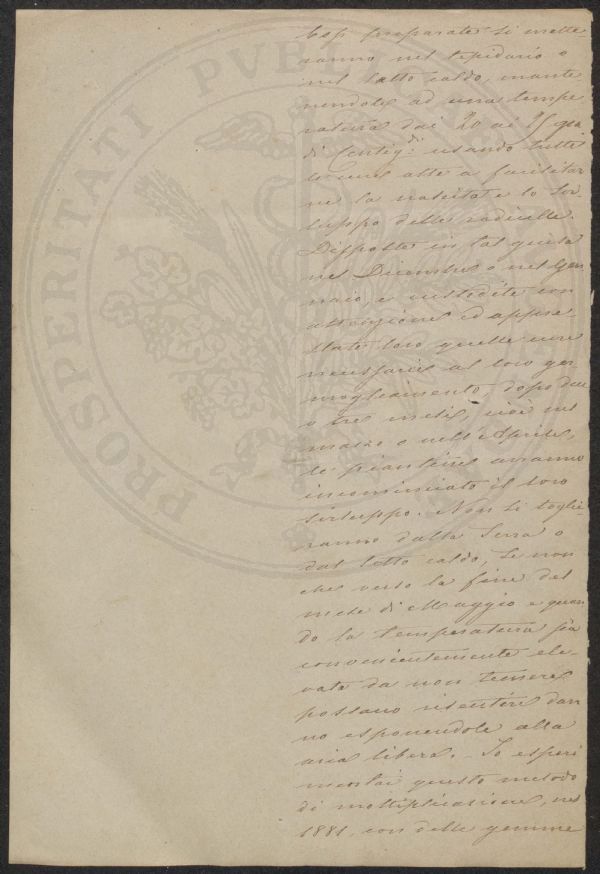 PROSPERITATI PVBLICAE
Così preparate si mette-
ranno nel tepidario o
nel letto caldo, mante
nendole ad una tempe
ratura dai 20 ai 25 gra
di Centig.di usando tutte
le cure atte a facilitar
ne la nascita e lo svi-
luppo delle radicelle.
Disposte in tal guisa
nel Dicembre o nel Gen
naio, e custodite con
attenzione ed appre-
state loro quelle cure
necessarie al loro ger
mogliamento, dopo due
o tre mesi, cioè nel
marzo o nell'Aprile,
le piantine avranno
incominciato il loro
sviluppo. Non si toglie
ranno dalla Serra o
dal letto caldo, se non
che verso la fine del
mese di Maggio e quan
do la temperatura sia
convenientemente ele-
vata da non temere
possano risentire dan
no esponendole alla
aria libera. - Io esperi
mentai questo metodo
di moltiplicazione, nel
1881, con delle gemme